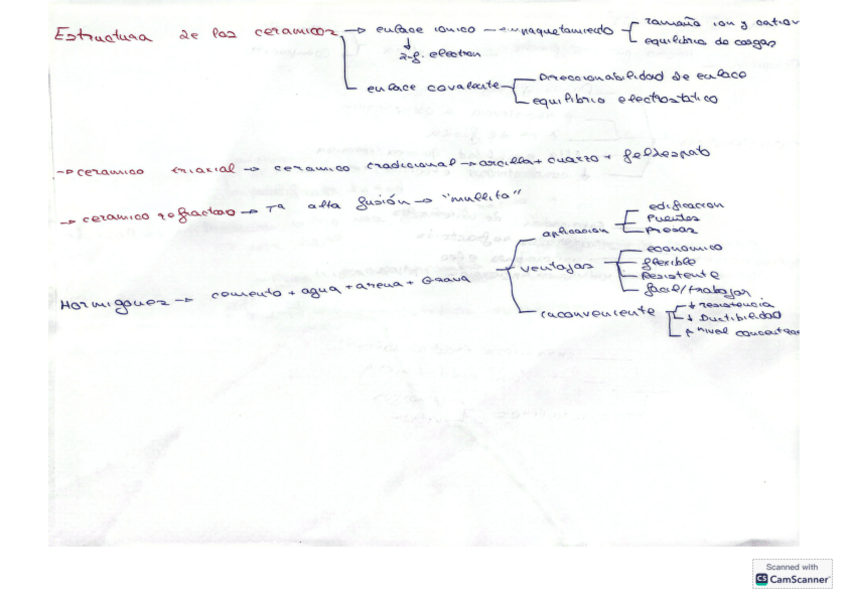 Estructura de los ceramicos → enlace ionico → empaquetamiento
tamaño ion y cation
equilibrio de cargas
enlace covalente
Direccionabilidad de enlace
equilibrio electrostatico
→ ceramico triaxial → ceramico tradicional → arcilla + cuarzo + feldespato
→ ceramico refractario → Tª alta fusión → "mullito"
Hormigones → cemento + agua + arena + Grava
aplicacion
edificacion
Puentes
Presas
ventajas
economico
flexible
Resistente
facil/trabajar
inconveniente
↓ resistencia
↓ Ductibilidad
↑ nivel
Scanned with
CS CamScanner